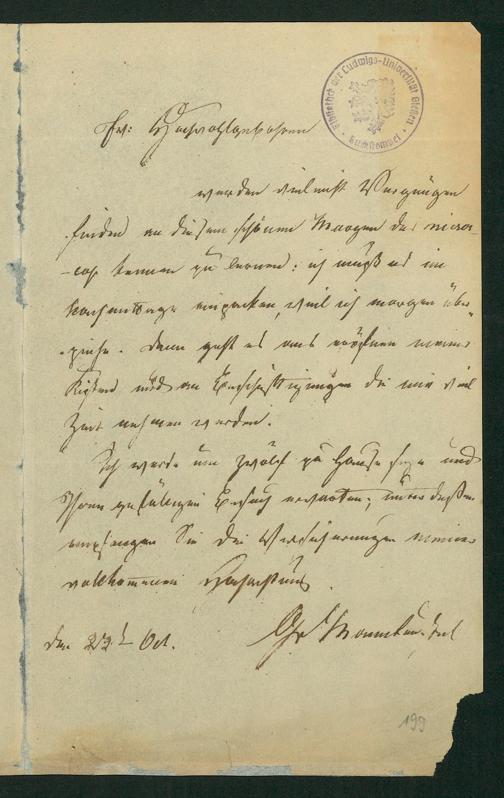 Bibliothek der Ludwigs-Universität Giessen
Buchstempel
Ew: Hochwohlgeboren
werden vielleicht Vergnügen
finden an diesem schönen Morgen das micros-
-cop kennen zu lernen: ich muß es im
Nachmittage einpacken, weil ich morgen über
-ziehe. Dann geht es ans eröffnen meiner
Kisten und an Beschäftigungen die mir viel
Zeit nehmen werden.
Ich werde um zwölf zu Hause seyn und
Ihren gefälligen Besuch erwarten; unterdeßen
empfangen Sie die Versicherungen meiner
vollkommenen Hochachtung
den 22t Oct.
199